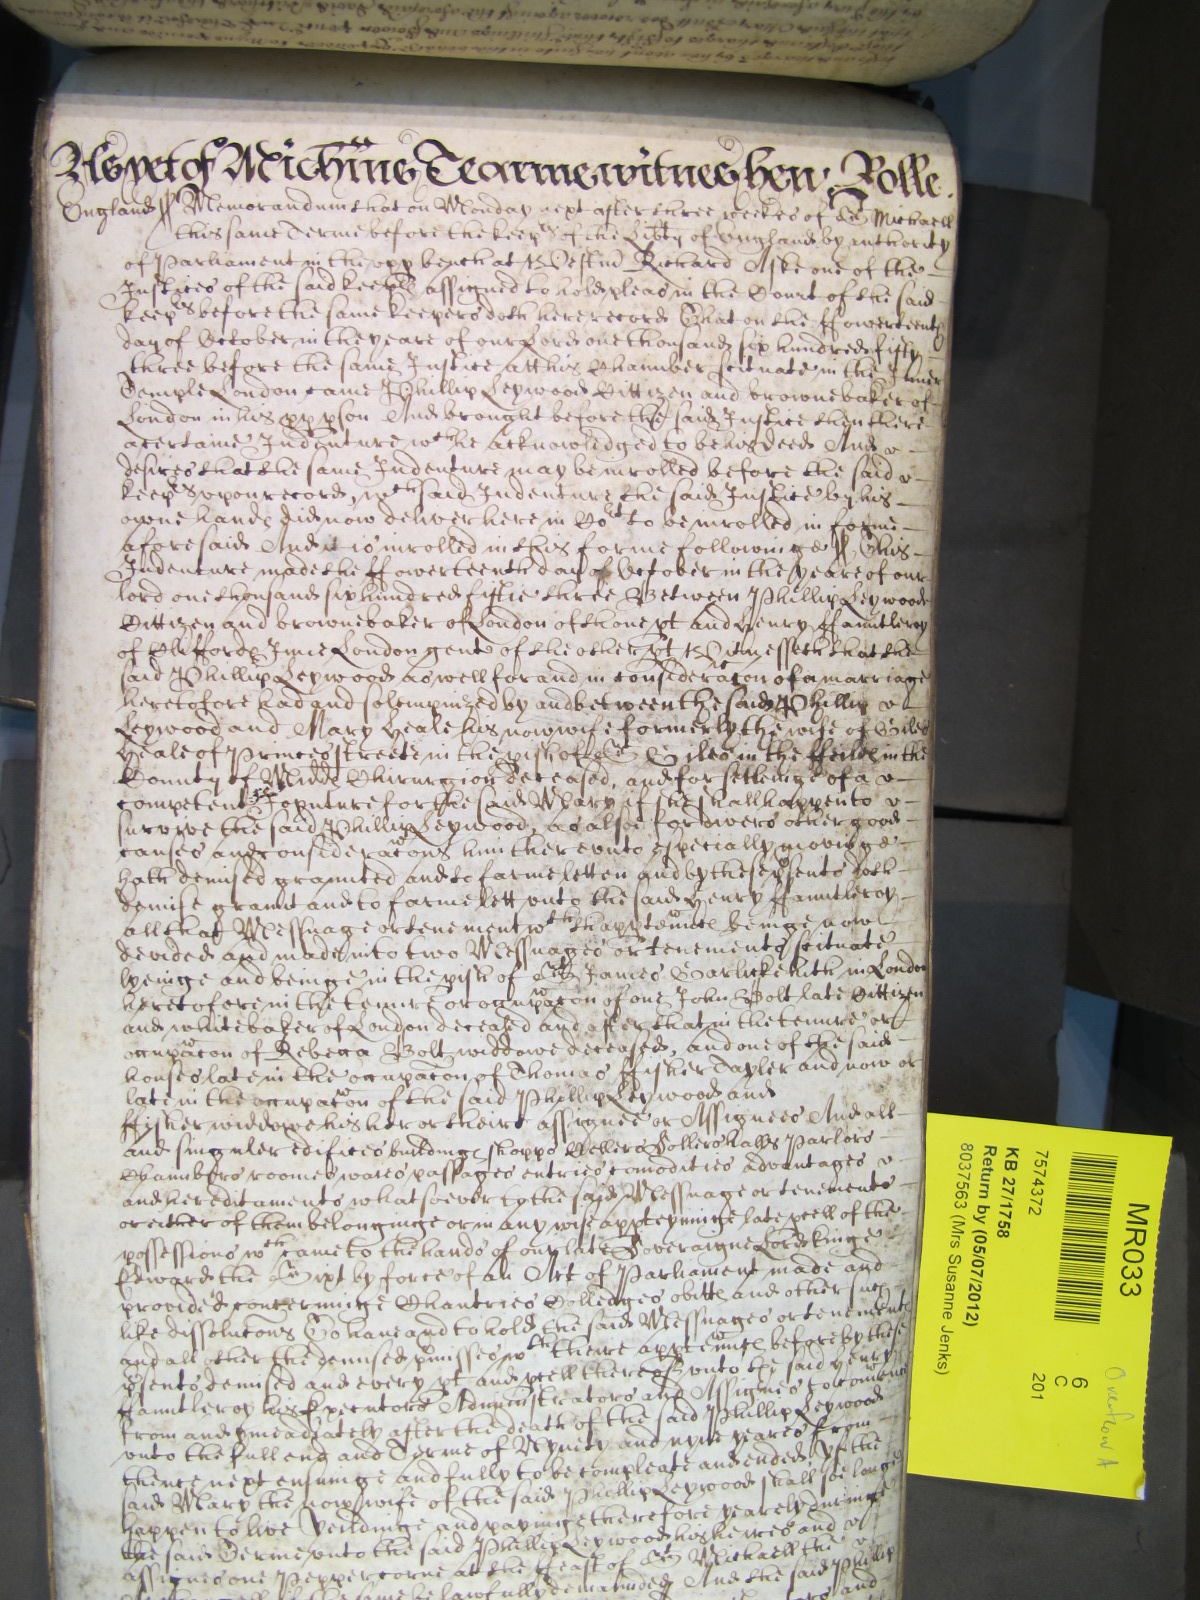 As yet of Michīne Tearme witnes Hen: Rolle.
England ss Memorandum that on Monday next after three weekes of St Michaell
this same Terme before the keeps of the Libty of England by authority
of Parliament in the upp bench at Westmr Richard Aske one of the
Justices of the said keeps assigned to hold pleas in the Court of the said
keeps before the same keepers doth here record That on the ffowerteenth
day of October in the yeare of our Lord one thousand six hundred fifty
three before the same Justice att his Chamber scituate in the Inner
Temple London came Phillip Leywood Cittizen and brownebaker of
London in his pp pson And brought before the said Justice then there
a certaine Indenture wch he acknowledged to be his deed And
desires that the same Indenture may be inrolled before the said
keeps upon record, wch said Indenture the said Justice by his
owne hands did now deliver here in Cort to be inrolled in forme
aforesaid And it is inrolled in this forme followinge ss. This
Indenture made the ffowerteenth day of October in the yeare of our
lord one thousand six hundred fiftie three Betweene Phillip Leywood
Cittizen and brownebaker of London of thone pt and Henry ffauntleroy
of Clifford Inne London gent of the other pt Witnesseth that the
said Phillip Leywood as well for and in consideracon of a marriage
heretofore had and solempnized by and betweene the said Phillip
Leywood and Mary Heale his now wife formerly the wife of Giles
Heale of Princes streete in the pish of St Giles in the ffeilds in the
County of Midd Chirurgion deceased, and for setlinge of a
competent Joynture for the said Mary if she shall happen to
survive the said Phillip Leywood, as alsoe for divers other good
causes and consideracons him thereunto especially moving
hath demised graunted and to farme letten and by these psents doth
demise graunt and to farme lett unto the said Henry ffauntleroy
all that Messuage or tenement wth thappurtennces beinge now
devided and made into two Messuages or tenements scituate
lyeinge and beinge in the pish of St James Garlickehith in London
heretofore in the tenure or occupacon of one John Bolt late Cittizen
and whitebaker of London deceased and after that in the tenure or
occupacon of Rebecca Bolt widdowe deceased, and one of the said
houses late in the occupacon of Thomas ffisher Tayler and now or
late in the occupacon of the said Phillip Leywood and
ffisher widdowe his her or theire assignee or Assignees And all
and singuler edifices buildings shopps Cellers Sollers halls Parlors
Chambers roomes waies passages entries comodities advantages
and hereditaments whatsoever to the said Messuage or tenements
or either of them belonginge or in any wise apperteyninge late pcell of the
possessions wch came to the hands of our late Soveraigne Lord Kinge
Edward the Sixt by force of an Act of Parliament made and
provided concerninge Chantries Colledges obitts and other such
like dissolucons To have and to hold the said Messuages or tenements
and all other the demised pmisses wth theire appurtennces before by these
psents demised and every pt and pcell thereof unto the said Henry
ffauntleroy his Executors Administrators and Assignes to comence
from and imeadiately after the death of the said Phillip Leywood
unto the full end and Terme of Nynety and nyne yeares from
thence next ensuinge and fully to be compleate and ended if the
said Mary the now wife of the said Phillip Leywood shall soe longe
happen to live Yeildinge and payinge therefore yearely duringe
the said Terme unto the said Phillip Leywood his heires and
assignes one Pepper corne at the ffeast of St Michaell the
the same be lawfully demaunded And the said Phillip
MR033
6
C
201
7574372
KB 27/1758
Return by (05/07/2012)
8037563 (Mrs Susanne Jenks)